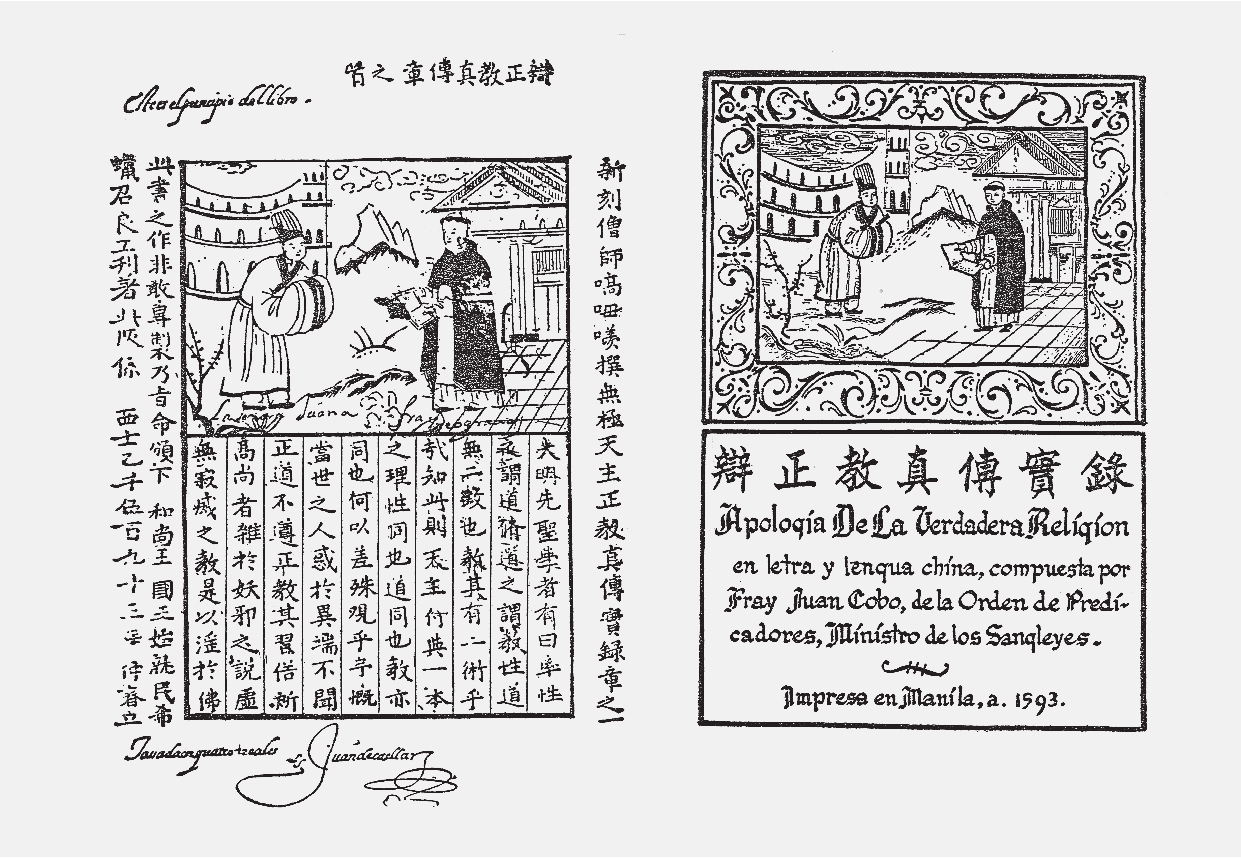 辯正教真傳章之首
Esta es el principio del libro.
新刻僧師嗃呣撰無極天主正教真傳實録章之一
夫明先聖學者有曰率性
之謂道脩道之謂教性道
無二致也教其有二術乎
哉知此則天主付與一本
之理性同也道同也教亦
同也何以差殊觀乎予慨
當世之人惑於異端不聞
正道不遵正教其習俗新
高尚者雜於妖邪之說虛
無寂滅之教是以淫於佛
此書之作非敢專製乃旨命頒下 和尚王 國王始就民希
蠟召良工刊著此版係 西士乙千伍百九十三年 仲春立
Juan de cuellar
辯正教真傳實錄
Apología De La Verdadera Religíon
en letra y lengua china, compuesta por
Fray Juan Cobo, de la Orden de Predí-
cadores, Mínístro de los Sangleyes.
Impresa en Maníla, a. 1593.